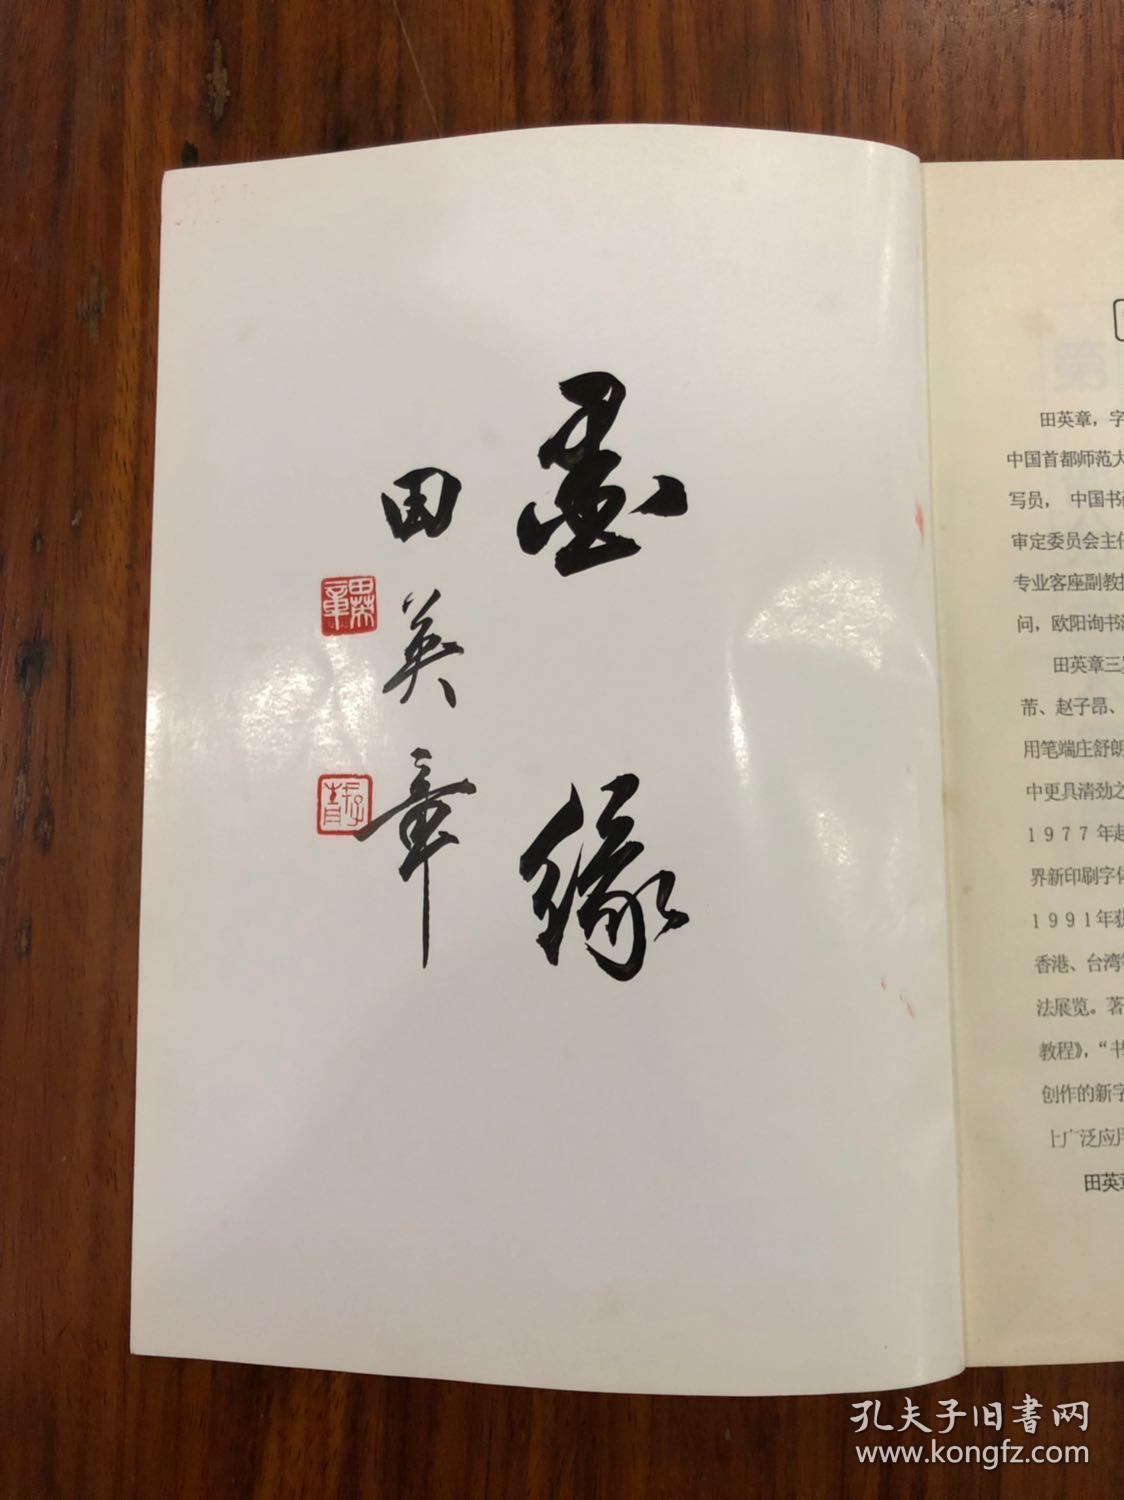 墨缘
田英章
田英章，字
中国首都师范大
写员，中国书
审定委员会主任
专业客座副教授
问，欧阳询书法
田英章三
芾、赵子昂、
用笔端庄舒朗
中更具清劲之
1977年起
界新印刷字体
1991年获
香港、台湾等
法展览。著
教程》，“书
创作的新字
上广泛应用
田英章
孔夫子旧书网
www.kongfz.com